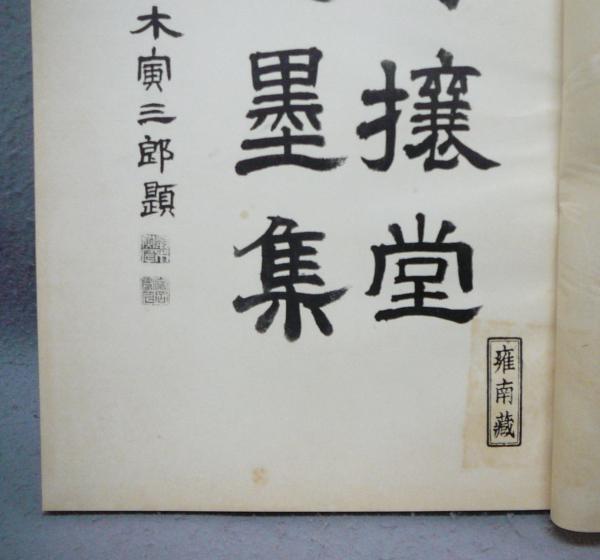 攘堂
墨集
木寅三郎題
雍南藏